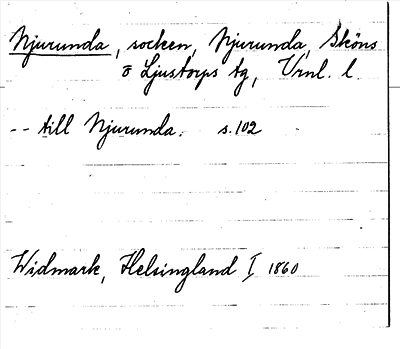 Njurunda, socken, Njurunda, Sköns
o Ljustorps tg, Vrnl. l.
-- till Njurunda. s. 102
Widmark, Helsingland I 1860